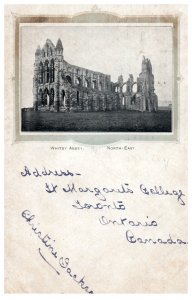 WHITBY ABBEY. NORTH-EAST.
Address -
St Margaret's College
Toronto
Ontario
Canada.
Christine